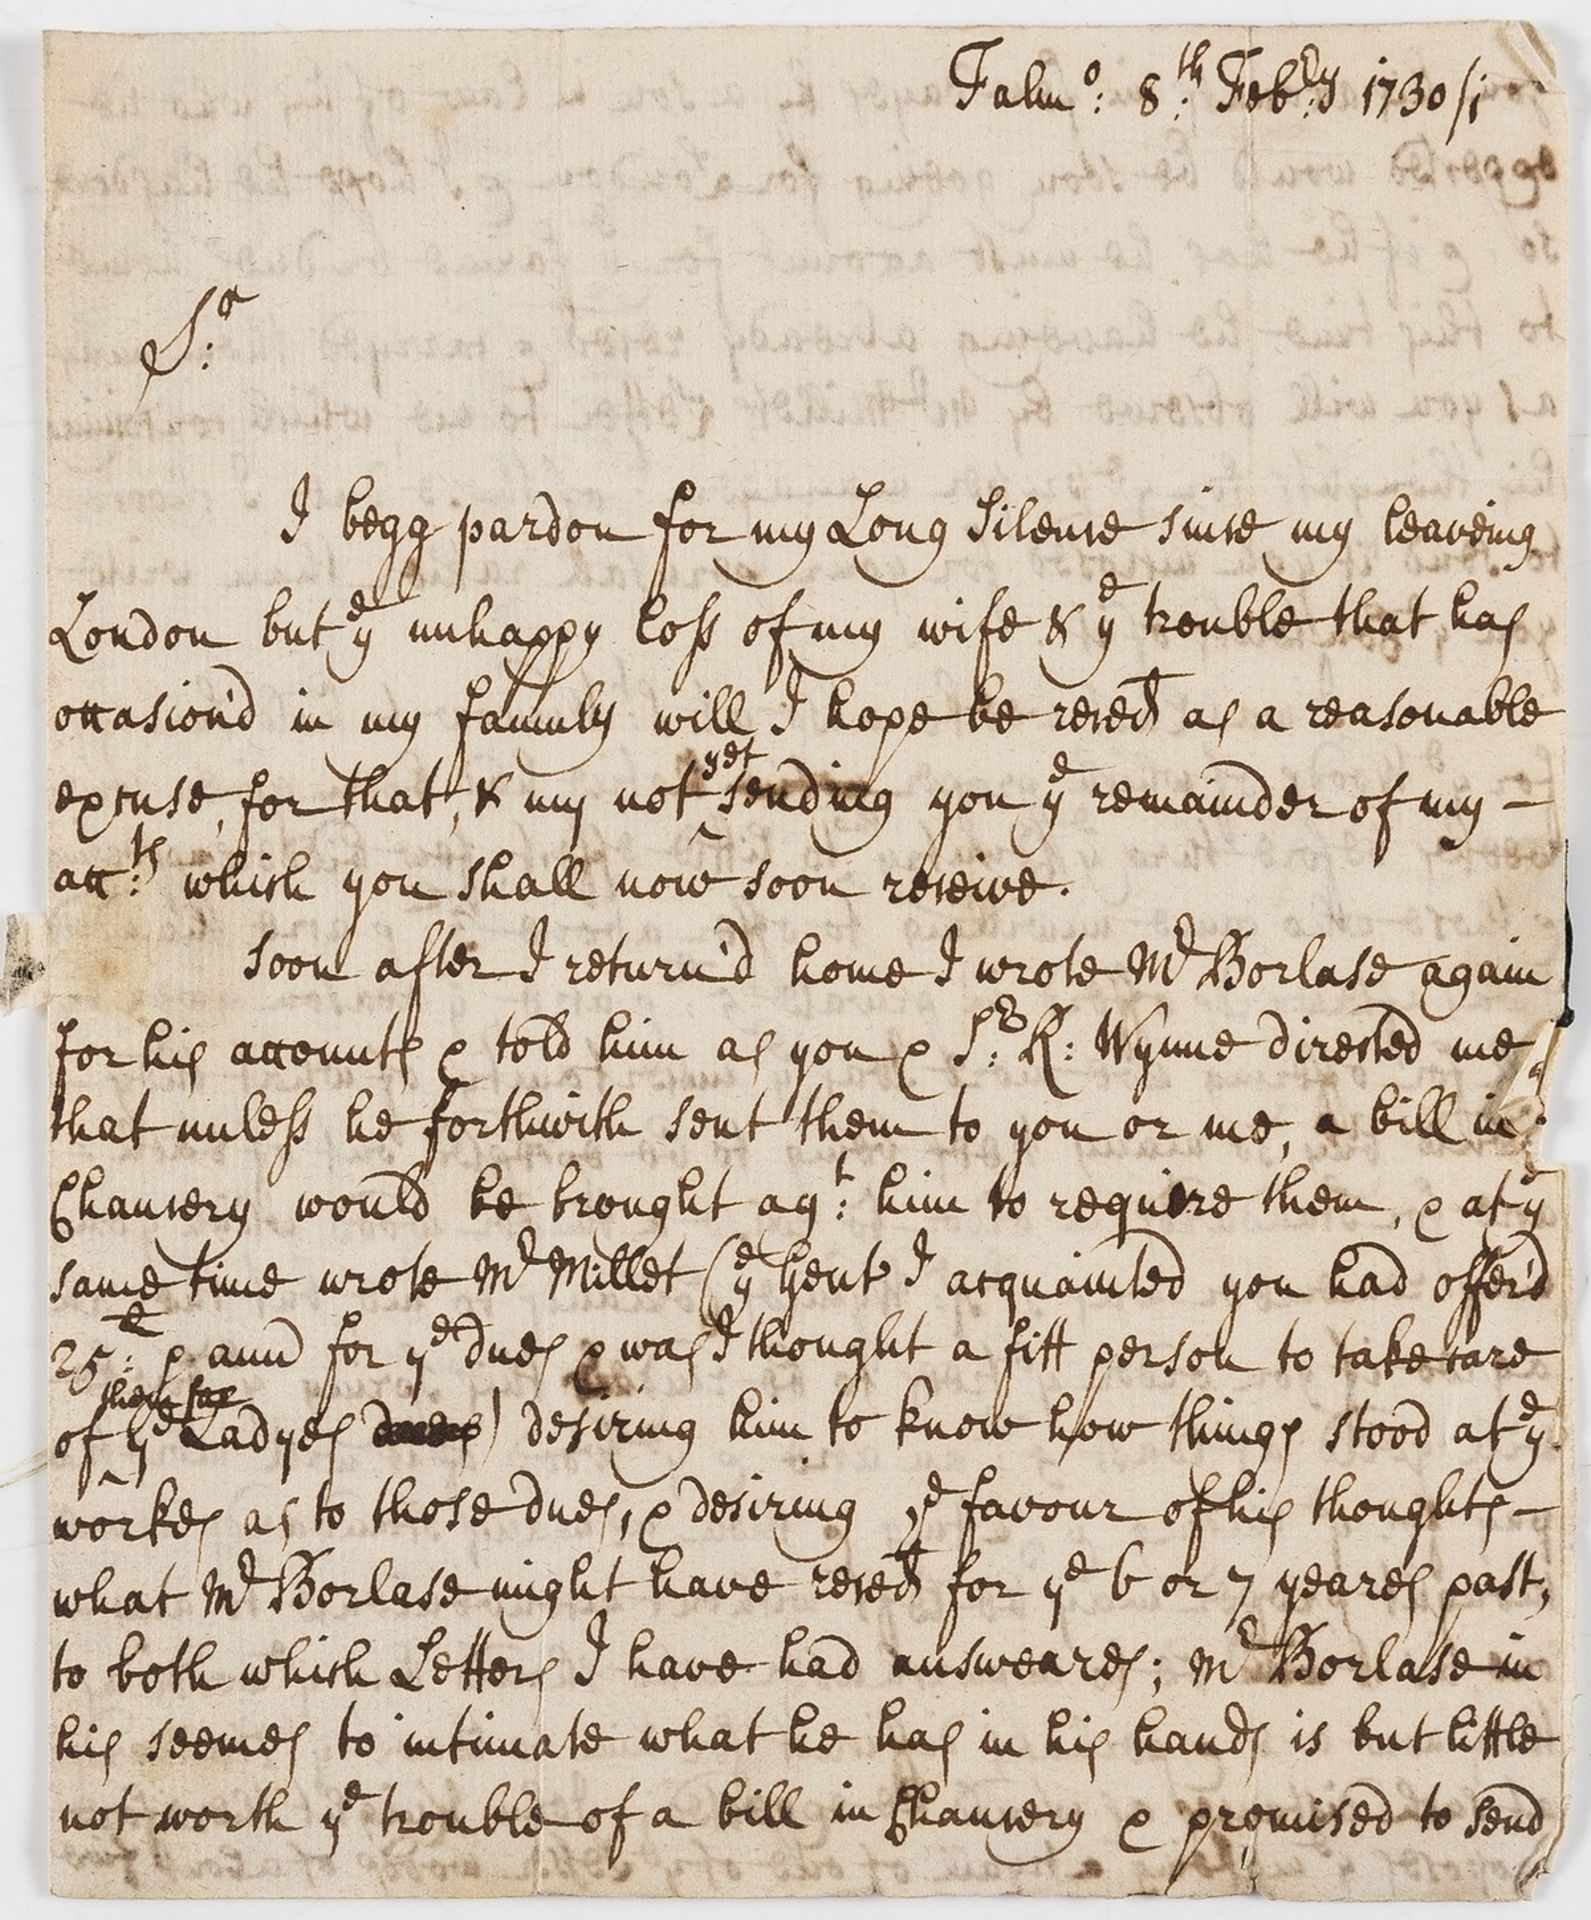 Falmo: 8th: Febry 1730/1
Sr:
I begg pardon for my Long Silence since my leaveing
London but ye unhappy loss of my wife & ye trouble that has
occasion'd in my family will I hope be reced as a reasonable
excuse, for that, & my not yet sending you ye remainder of my -
accts: which you shall now soon receive.
Soon after I return'd home I wrote Mr Borlase again
for his accounts & told him as you & Sr: R: Wynne directed me
that unless he forthwith sent them to you or me, a bill in
Chancery would be brought agt: him to require them, & at ye
same time wrote Mr Millet (ye Gent I acquainted you had offer'd
25l: p annd for ye dues & was I thought a fitt person to take care
of them for ye Ladyes dues) desiring him to know how things stood at ye
workes as to those dues, & desiring ye favour of his thoughts -
what Mr Borlase might have reced for ye 6 or 7 yeares past,
to both which Letters I have had answeares; Mr Borlase in
his seemes to intimate what he has in his hands is but little
not worth ye trouble of a bill in Chancery & promised to send